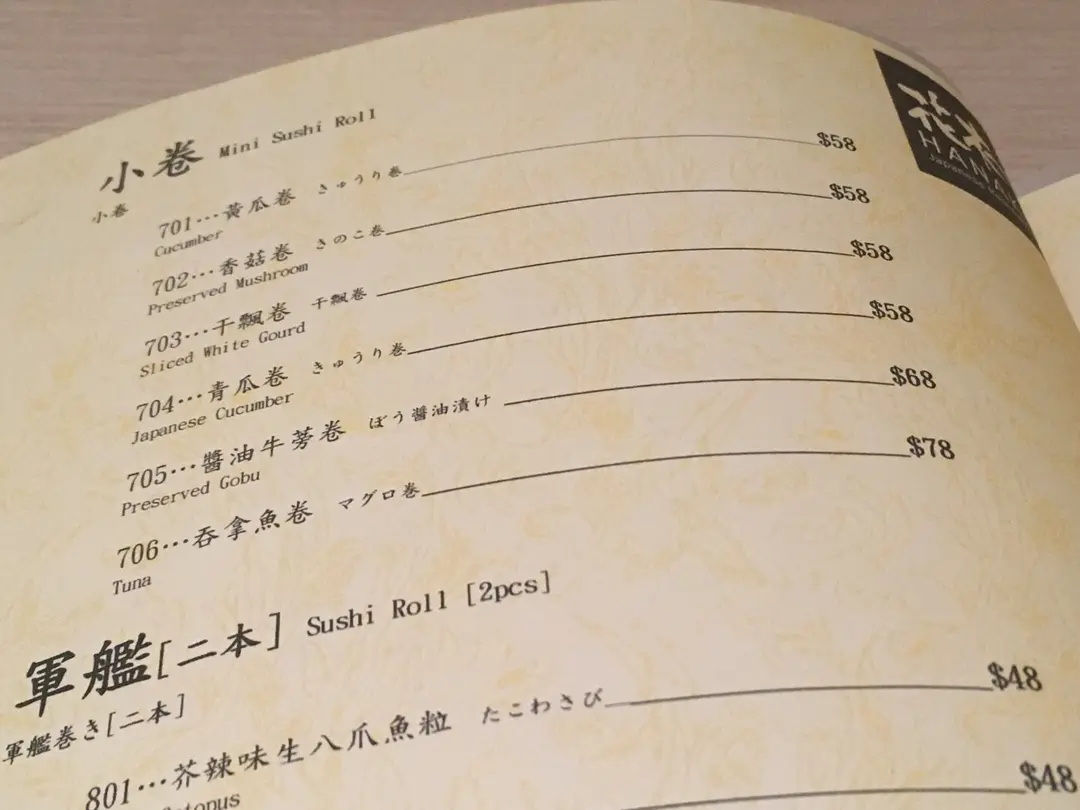 小卷 Mini Sushi Roll
小卷
701…黃瓜卷 きゅうり卷 $58
Cucumber
702…香菇卷 きのこ卷 $58
Preserved Mushroom
703…干瓢卷 干瓢卷 $58
Sliced White Gourd
704…青瓜卷 きゅうり卷 $58
Japanese Cucumber
705…醬油牛蒡卷 ぼう醬油漬け $68
Preserved Gobu
706…吞拿魚卷 マグロ卷 $78
Tuna
軍艦[二本] Sushi Roll [2pcs]
軍艦巻き[二本]
801…芥辣味生八爪魚粒 たこわさび $48
$48
花
Japanese